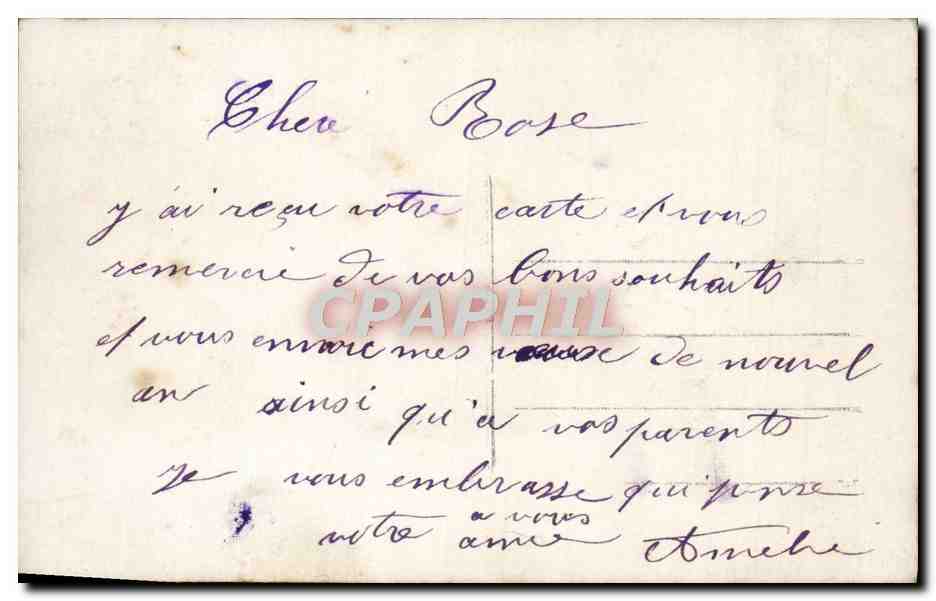 Cheré Rose
y ai reçu votre carte et vous
remercie de vos bons souhaits
CPAPHIL
et vous envoie mes voeux de nouvel
an ainsi qu'a vos parents
je vous embrasse qui pense
a vous
votre amie Amelie